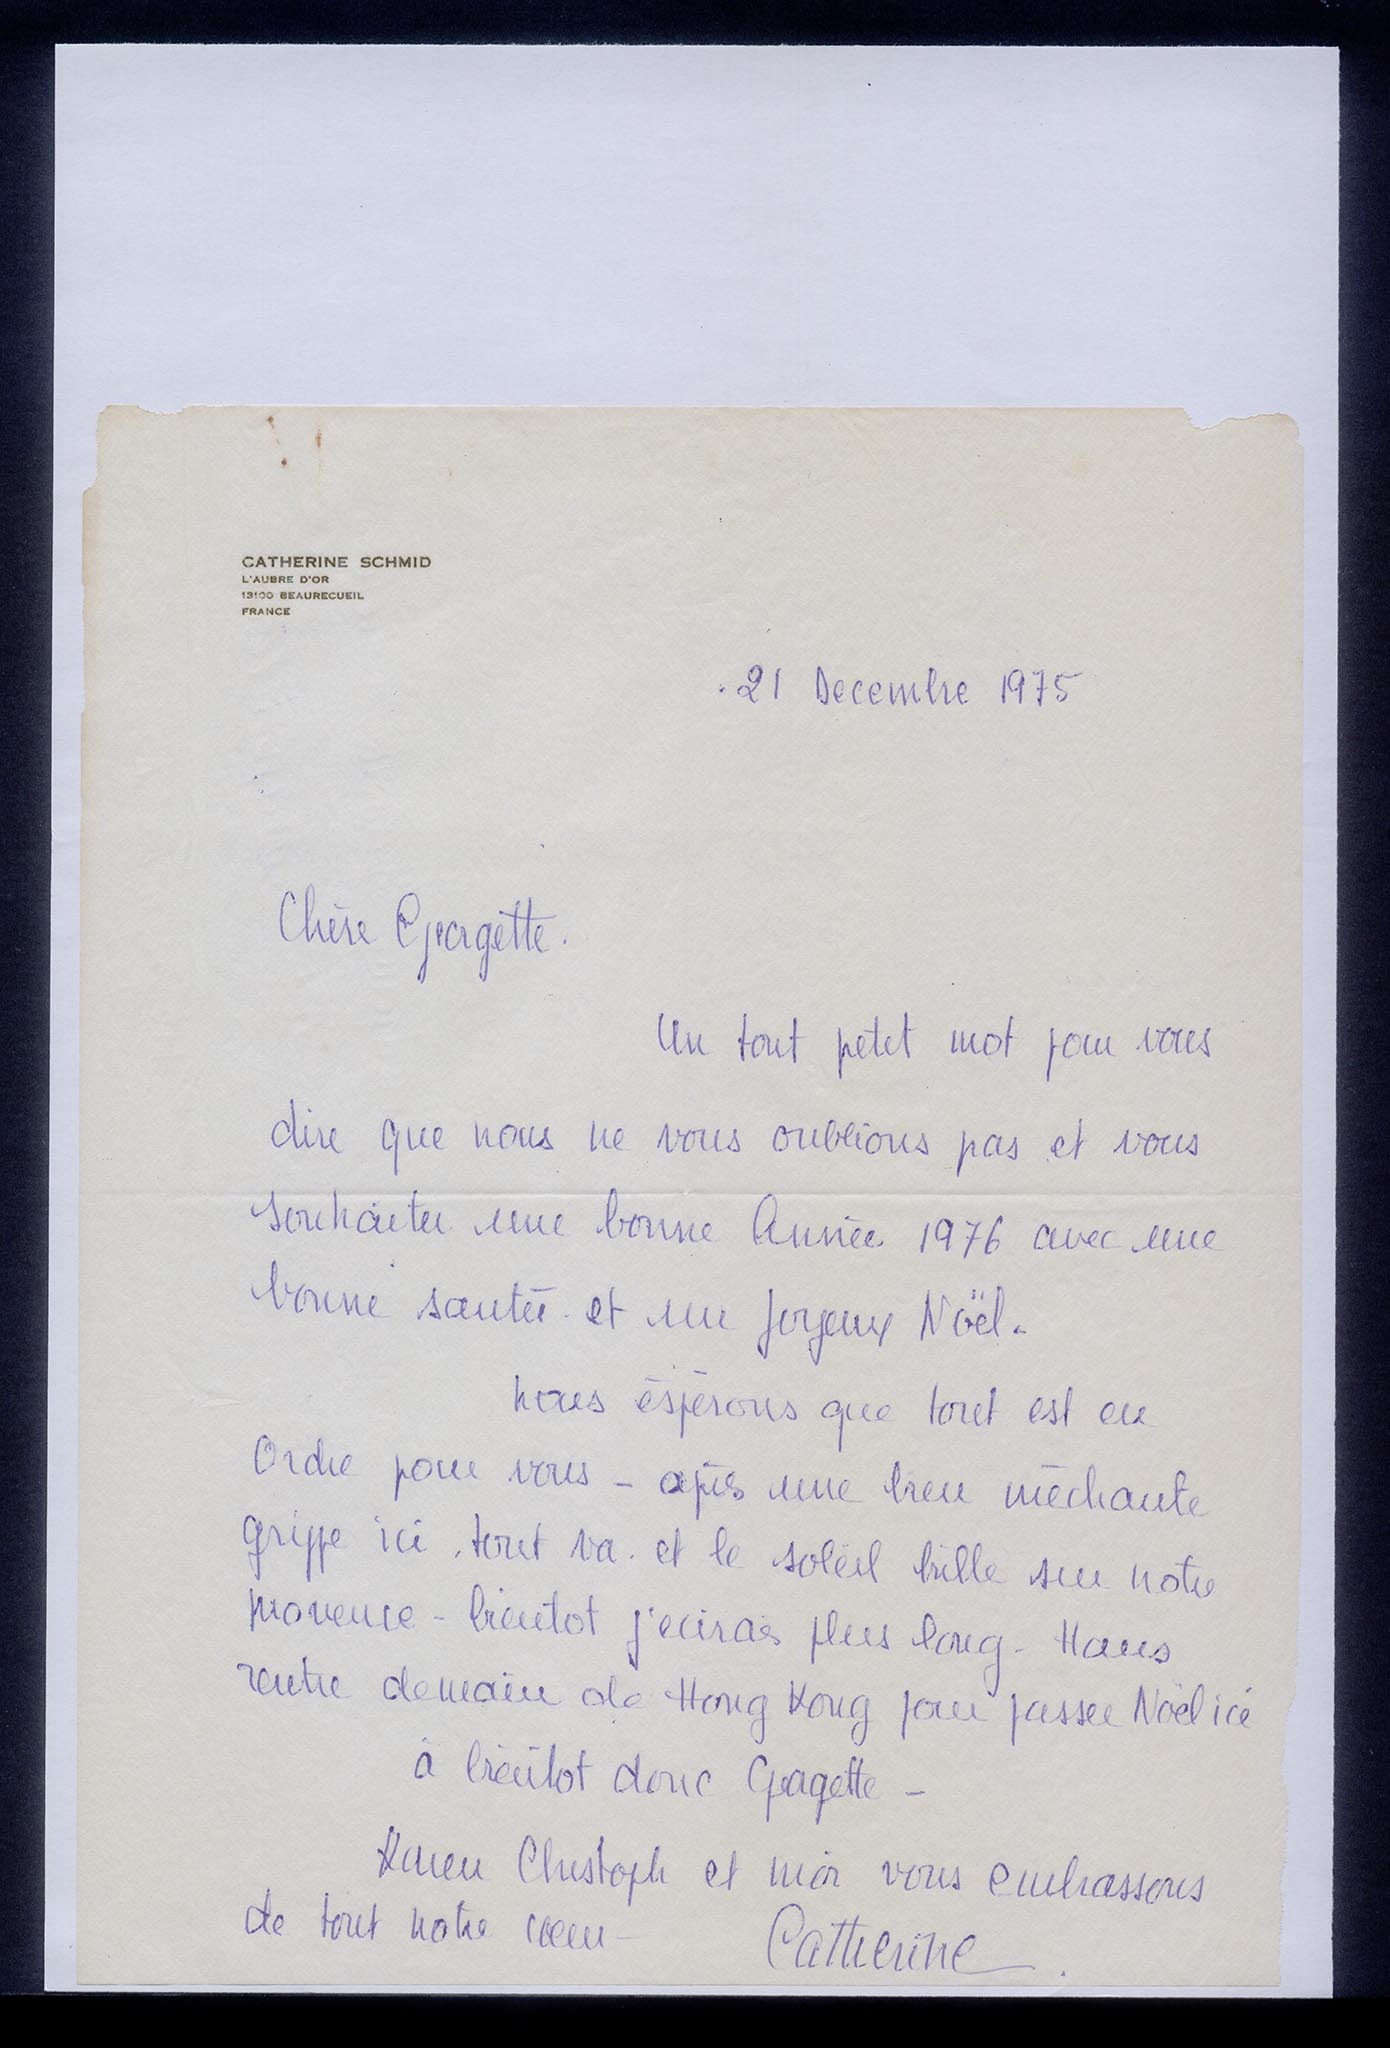 CATHERINE SCHMID
L'AUBRE D'OR
13100 BEAURECUEIL
FRANCE
21 Decembre 1975
Chère Georgette.
Un tout petit mot pour vous
dire que nous ne vous oublions pas et vous
souhaiter une bonne Année 1976 avec une
bonne santé et un joyeux Noël.
nous éspérons que tout est en
Ordre pour vous - après une bien méchante
grippe ici, tout va. et le soleil brille sur notre
provence - bientot j'ecirais plus long - Hans
rentre demain de Hong Kong pour passer Noël ici
à bientot donc Georgette -
Karen Christoph et moi vous embrassons
de tout notre cœur -
Catherine.